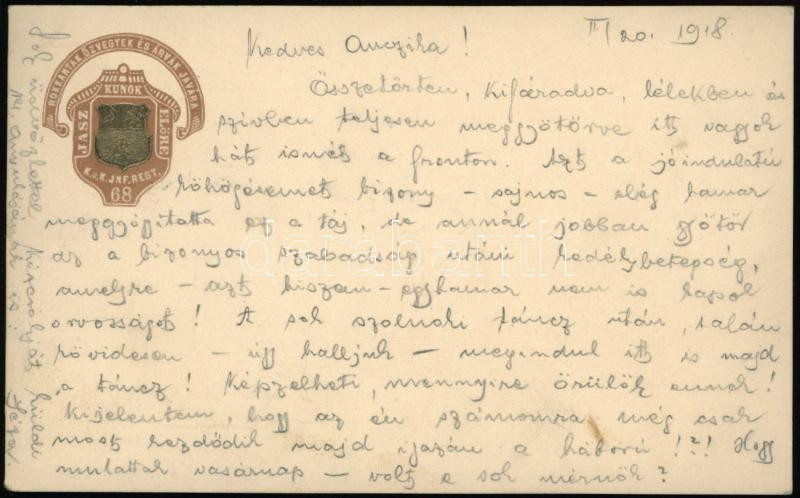 ROKKANTAK ÖZVEGYEK ÉS ÁRVÁK JAVÁRA
JÁSZ KUNOK ELŐRE
K.u.K. JNF. REGT.
68
III/20. 1918.
Kedves Anczika!
Összetörten, kifáradva, lélekben és
szívben teljesen meggyötörve itt vagyok
hát ismét a fronton. Azt a jóindulatú
köhögésemet bizony – sajnos – elég hamar
meggyógyította ez a táj, de annál jobban gyötör
az a bizonyos szabadság utáni kedélybetegség,
amelyre – azt hiszem – egyhamar nem is kapok
orvosságot! A sok szolnoki táncz után, talán
rövidesen – úgy halljuk – megindul itt is majd
a táncz! Képzelheti, mennyire örülök ennek!
Kijelentem, hogy az én számomra még csak
most kezdődik majd igazán a háború!?! Hogy
mulattak vasárnap – volt e sok mérnök?
Sok üdvözlettel kézcsókját küldi
Géza.
darabanth